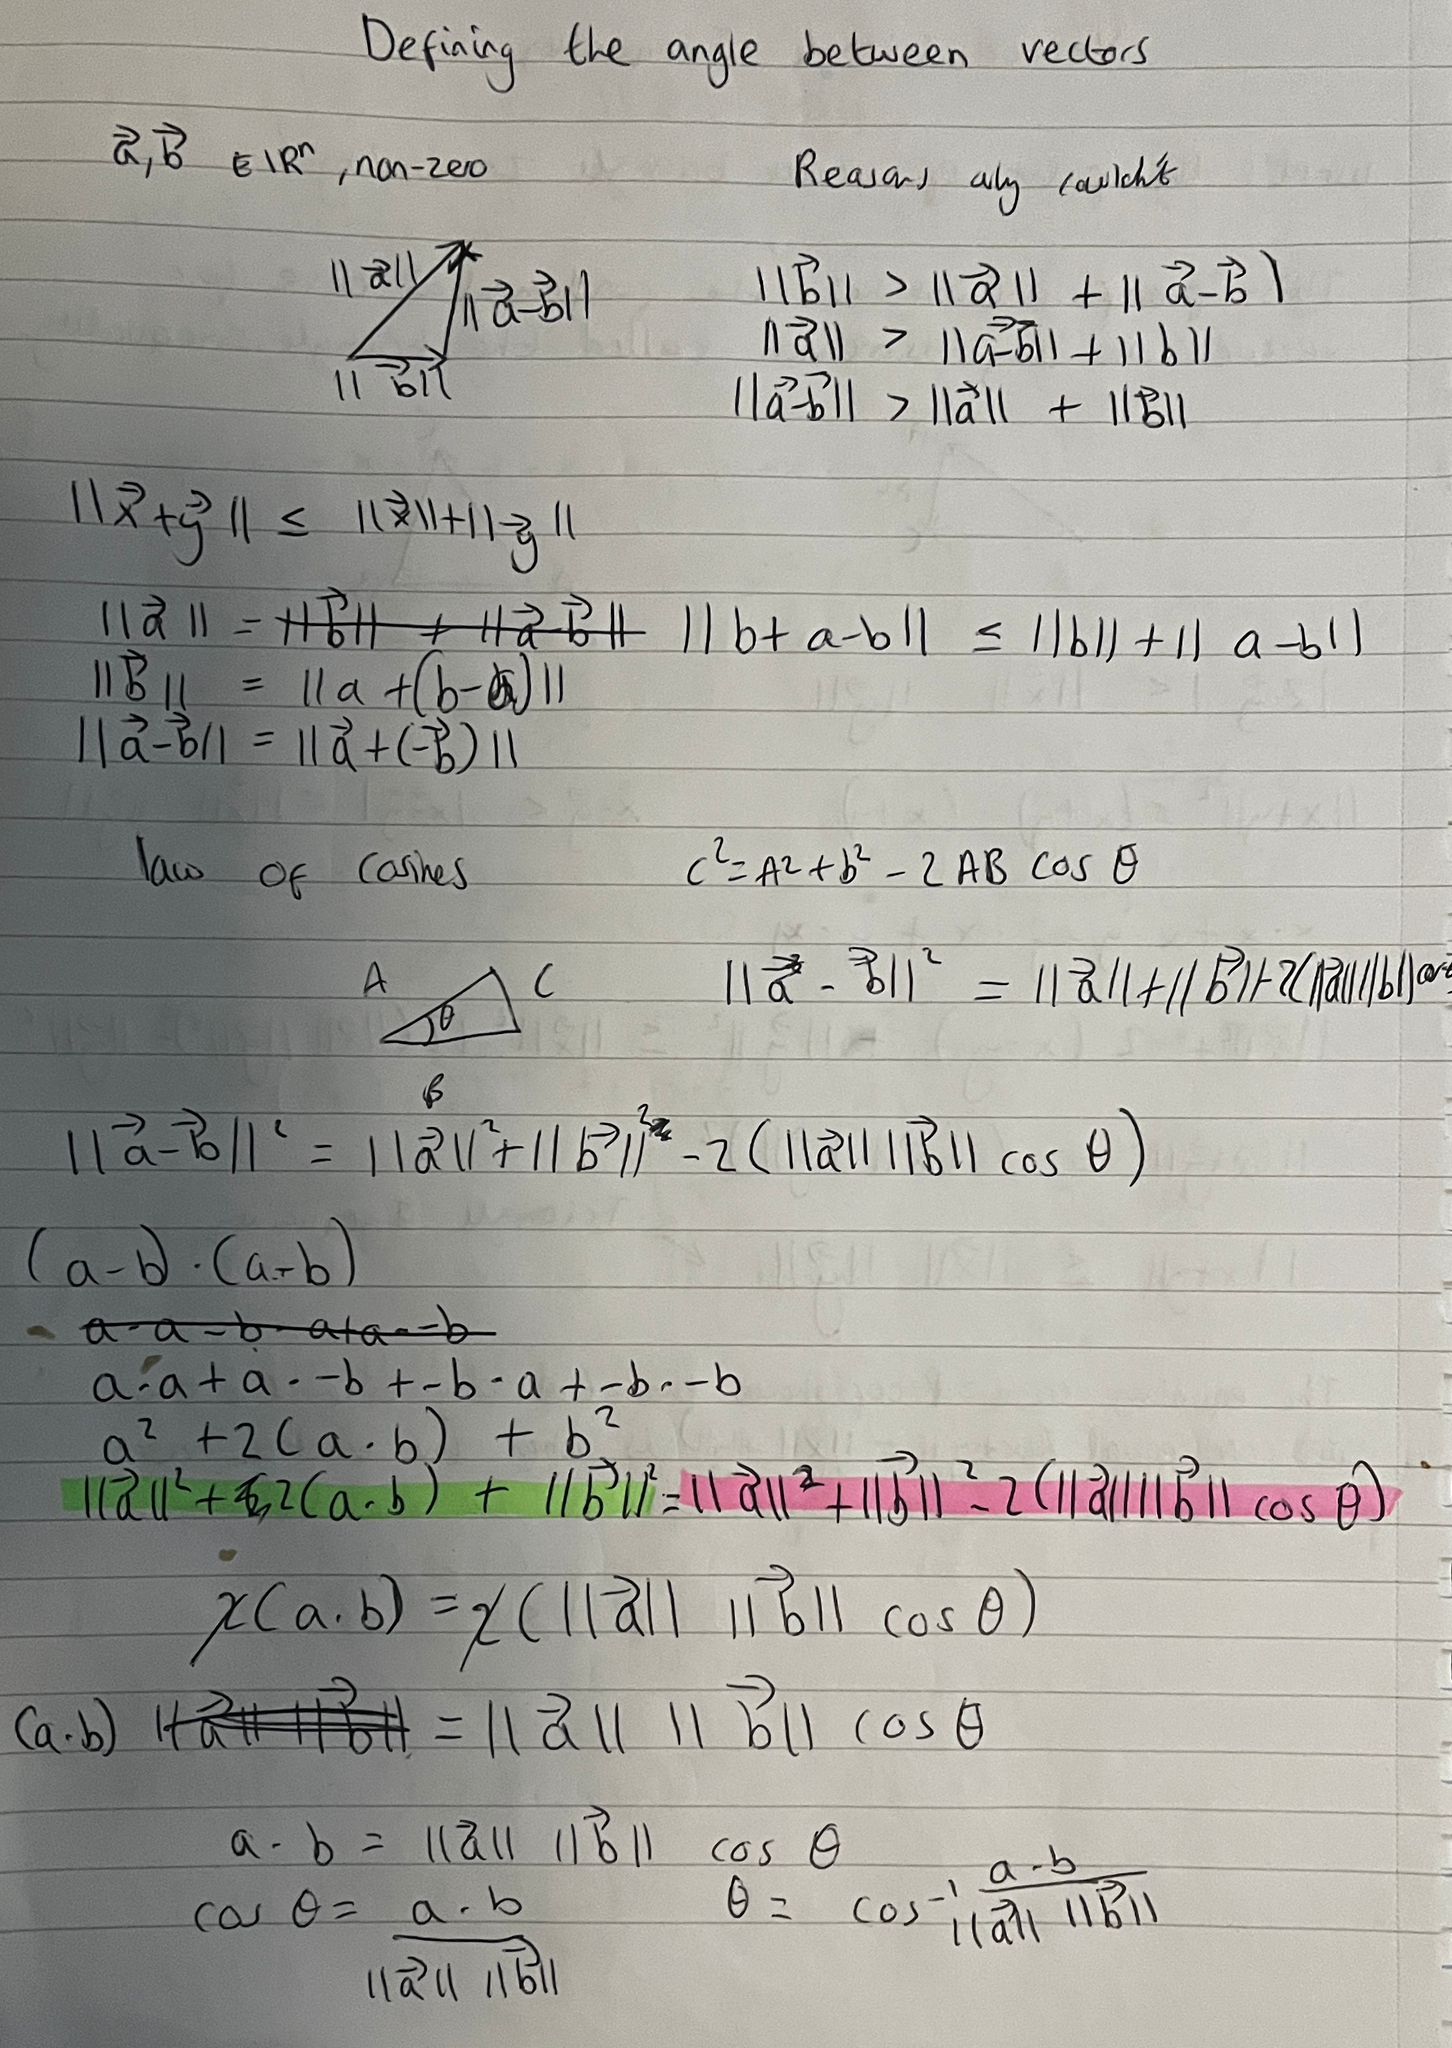 Defining the angle between vectors
a⃗, b⃗ ∈ ℝⁿ, non-zero
Reasons why couldn't
||a⃗||
||a⃗-b⃗||
||b⃗||
||b⃗|| > ||a⃗|| + ||a⃗-b⃗|
||a⃗|| > ||a⃗-b⃗|| + ||b||
||a⃗-b⃗|| > ||a⃗|| + ||b⃗||
||x⃗+y⃗|| ≤ ||x⃗||+||y⃗||
||a⃗|| = ~~||b⃗|| + ||a⃗-b⃗||~~ ||b+a-b|| ≤ ||b||+||a-b||
||b⃗|| = ||a+(b-a)||
||a⃗-b⃗|| = ||a⃗+(-b⃗)||
law of cosines c²=A²+b²-2AB cos θ
A
C
θ
B
||a⃗-b⃗||² = ||a⃗||+||b⃗||+2(||a⃗||||b||
||a⃗-b⃗||² = ||a⃗||²+||b⃗||²-2(||a⃗||||b⃗|| cos θ)
(a-b)·(a-b)
~~a·a-b·a+a·-b~~
a·a+a·-b+-b·a+-b·-b
a²+2(a·b)+b²
||a⃗||²+2(a·b)+||b⃗||²=||a⃗||²+||b⃗||²-2(||a⃗||||b⃗|| cos θ)
2(a·b)=2(||a⃗|| ||b⃗|| cos θ)
(a·b) ~~||a⃗|| ||b⃗||~~ = ||a⃗|| ||b⃗|| cos θ
a·b = ||a⃗|| ||b⃗|| cos θ
cos θ = a·b / ||a⃗|| ||b⃗||
θ = cos⁻¹ a·b / ||a⃗|| ||b⃗||